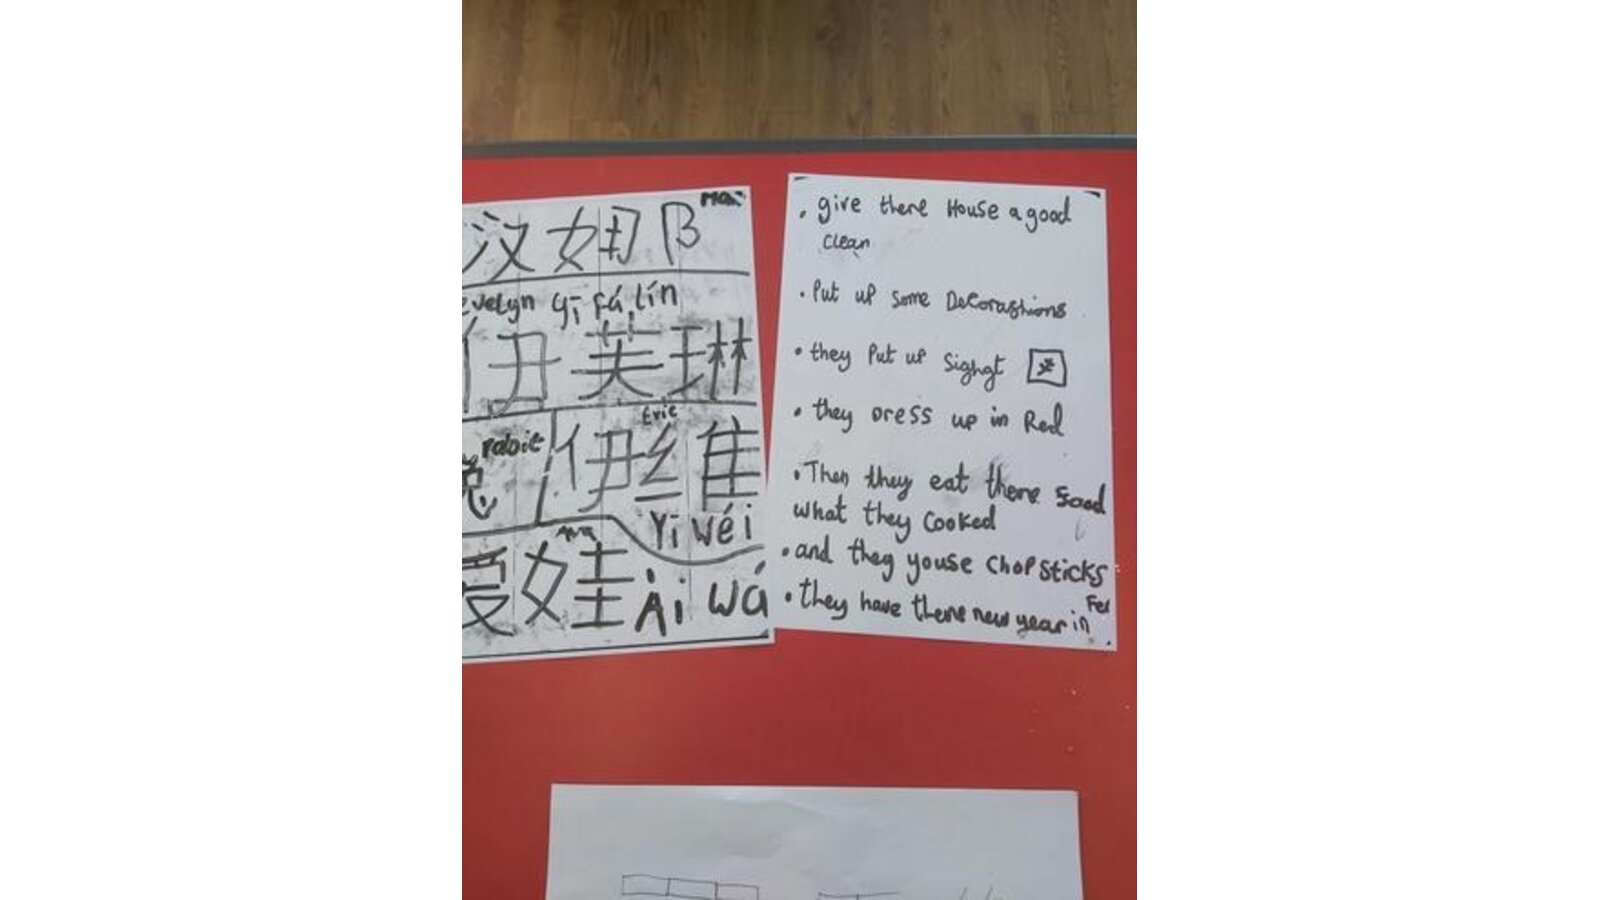 汉姆
evelyn yī fú lín
伊芙琳
rabbit
兔
evie
伊维
Yī wéi
Ava
爱娃 Ài wá
. give there House a good
clean
. Put up some Decorashions
. they Put up sighgt
. they Dress up in Red
. Then they eat there food
what they cooked
. and they youse chopsticks
. they have there new year in Feb